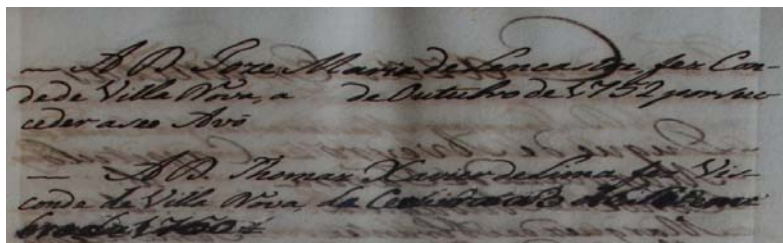 — A D. Joze Maria de Lencastre fez Con-
de de Villa Nova, a de Outubro de 1752 por suc
ceder a seo Avô
— A D. Thomaz Xavier de Lima fez Vis-
conde de Villa Nova da Cerveira a
bro de 1750